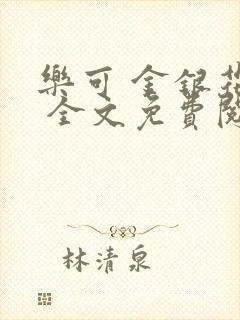 樂可 金銀花
全文免費閱
林清泉